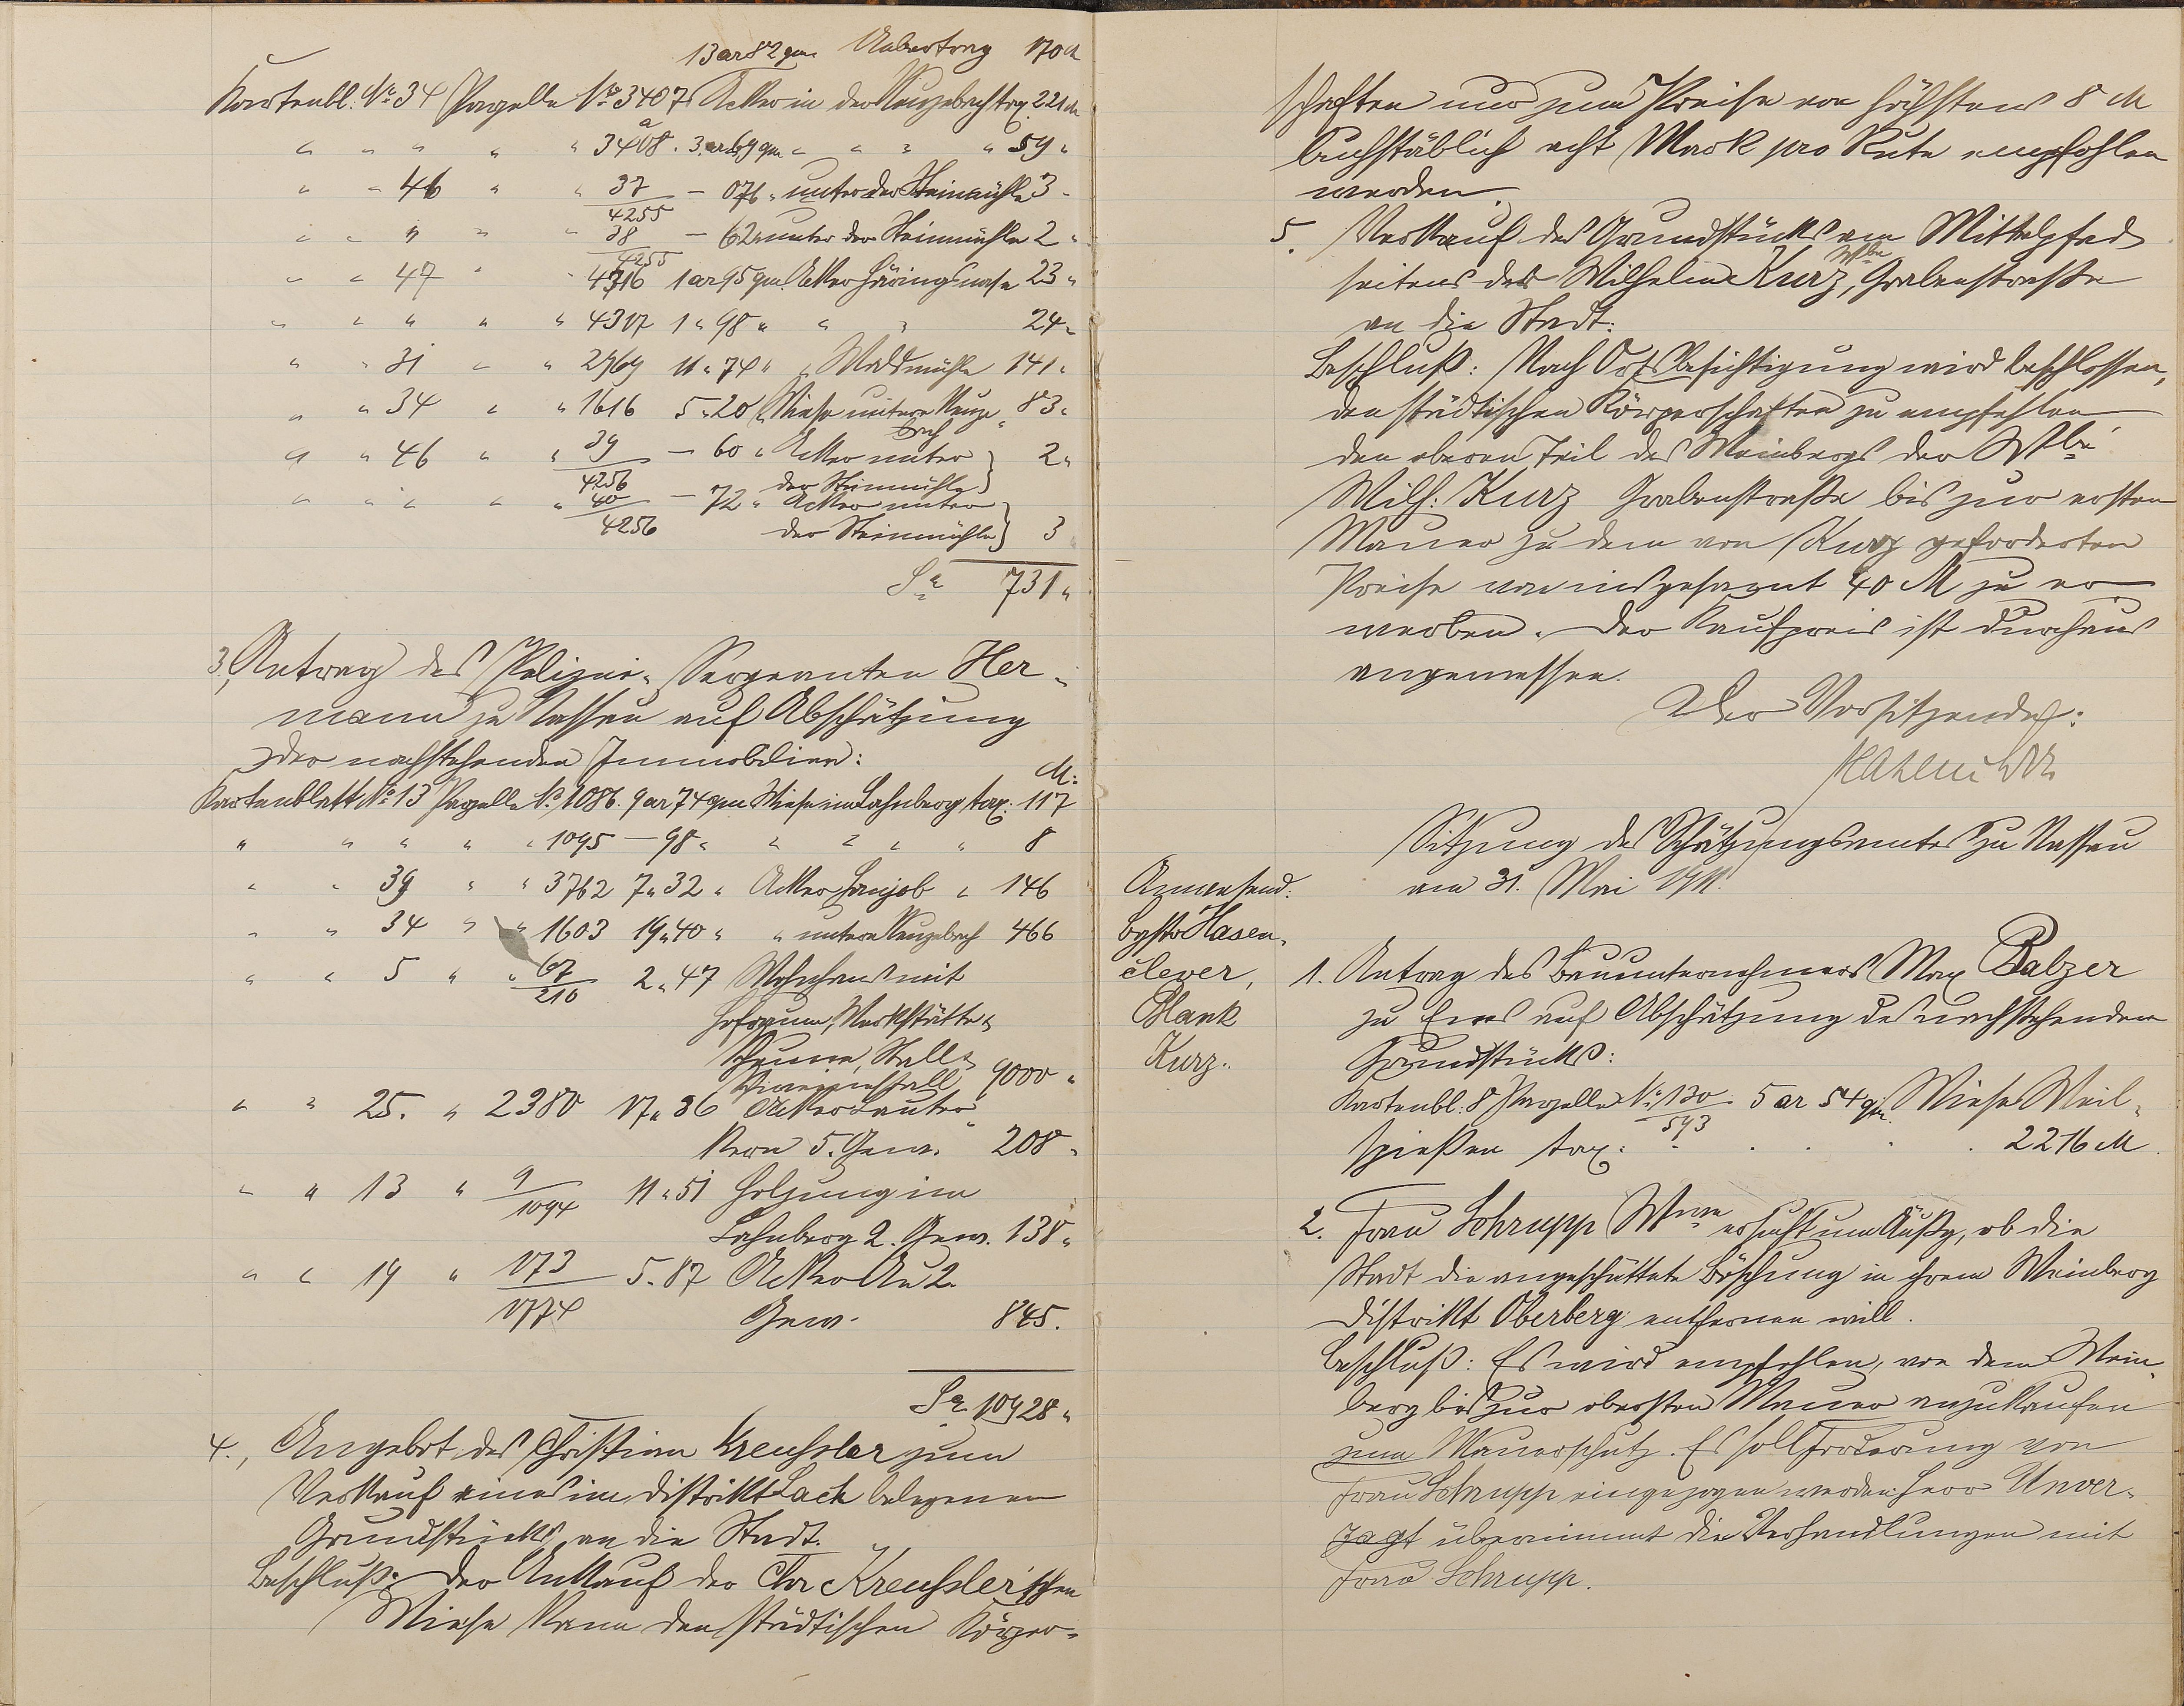 13ar82qm Uebertrag 170 M
Kartenbl. No 34 Parzelle No 3407 Acker in der Neuzebach tax. 221 M
" " " " " 3408. 3.ar69qm " " " " 59 "
" " 46 " " 37/4255 - 076 " unter der Steinmühle 3 "
" " " " " 38/4255 - 62 " unter der Steinmühle 2 "
" " 47 " " 4316 1ar95qm Acker Häringsnase 23 "
" " " " " 4317 1 " 98 " " " 24 "
" " 31 " " 2769 11 " 74 " " Waldmühle 141 "
" " 34 " " 1616 5 " 20 " Wiese untere Neuze- 83 "
bach
" " 46 " " 39/4256 - 60 " Acker unter } 2 "
der Steinmühle
" " " " " 40/4256 - 72 " Acker unter
der Steinmühle } 3
Sa 731 "
3., Antrag des Polizei-Sergeanten Her-
mann zu Nassau auf Abschätzung
der nachstehenden Immobilien:
M.
Kartenblatt No 13 Parzelle No 1086. 9ar74qm Wiese im Lahnberg tax: 117
" " " " " 1095 - 98 " " " " " 8
" " 39 " " 3762 7 " 32 " Acker Hanjob " 146
" " 34 " " 1603 19 " 40 " " untere Neuzebach 466
" " 5 " " 67/216 2 " 47 Wohnhaus mit
Hofraum, Werkstätte,
Scheune, Stall,
Schweinestall 9000 "
" " 25. " 2380 17 " 36 Acker Lauter-
kern 5. Gew. 208 "
" " 13 " 9/1094 11 " 51 Holzung im
Lahnberg 2. Gew. 138 "
" " 19 " 173/1774 5 " 87 Acker Au 2.
Gew. 845.
Sa 10928 "
4., Angebot des Christian Kreußler zum
Verkauf eines im Distrikt Lach belegenen
Grundstücks an die Stadt.
Beschluß: Der Ankauf der Chr Kreußler'schen
Wiese kann den städtischen Körper-
schaften nur zum Preise von höchstens 8 M
buchstäblich acht Mark pro Rute empfohlen
werden.
5. Verkauf des Grundstücks am Mittelpfad
seitens des Wilhelm Kurz Wbe, Grabenstraße
an die Stadt.
Beschluß: Nach Ortsbesichtigung wird beschlossen,
den städtischen Körperschaften zu empfehlen
den oberen Teil des Weinbergs der Wbe
Wilh. Kurz Grabenstraße bis zur ersten
Mauer zu dem von Kurz geforderten
Preise von insgesamt 40 M zu er-
werben. Der Kaufpreis ist durchaus
angemessen.
Der Vorsitzende:
Hasenclever
Sitzung des Schätzungsamtes zu Nassau
am 31. Mai 1911.
Anwesend:
Bgstr Hasen-
clever,
Plank
Kurz.
1. Antrag des Bauunternehmers Max Balzer
zu Ems auf Abschätzung des nachstehenden
Grundstücks:
Kartenbl. 8 Parzelle No 130/593 5 ar 54 qm. Wiese Weil-
spießen tax. . . . . 2216 M.
2. Frau Schrupp Wwe ersucht um Äußg, ob die
Stadt die angeschüttete Böschung in ihrem Weinberg
Distrikt Oberberg entfernen will.
Beschluß: Es wird empfohlen, von dem Wein-
berg bis zur obersten Mauer anzukaufen
zum Mauerschutz. Es soll Forderung von
Frau Schrupp eingezogen werden. Herr Unver-
zagt übernimmt die Verhandlungen mit
Frau Schrupp.